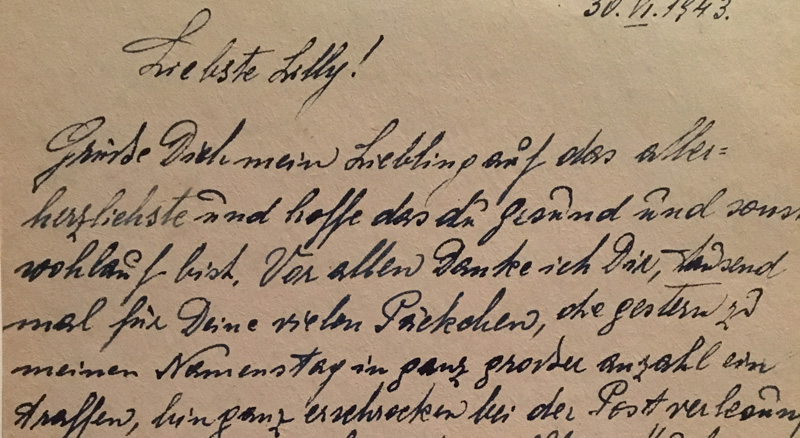 30. VI. 1943.
Liebste Lilly!
Grüße Dich mein Liebling auf das aller=
herzlichste und hoffe das du gesund und sonst
wohlauf bist. Vor allen Danke ich Dir, tausend
mal für Deine vielen Päckchen, die gestern zu
meinen Namenstag in ganz großer anzahl ein
traffen, bin ganz erschrocken bei der Post verlesun